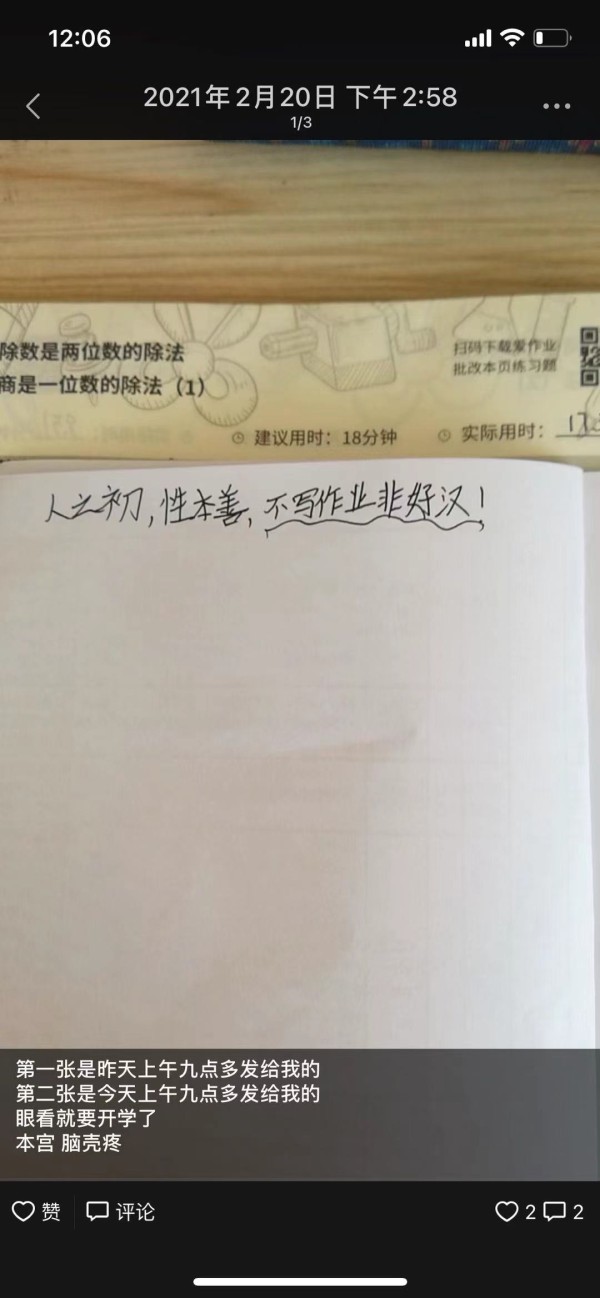 12:06
2021年2月20日 下午2:58
1/3
除数是两位数的除法
商是一位数的除法（1）
扫码下载爱作业
批改本页练习题
建议用时：18分钟
实际用时：
人之初，性本善，不写作业非好汉！
第一张是昨天上午九点多发给我的
第二张是今天上午九点多发给我的
眼看就要开学了
本宫 脑壳疼
赞
评论
2
2